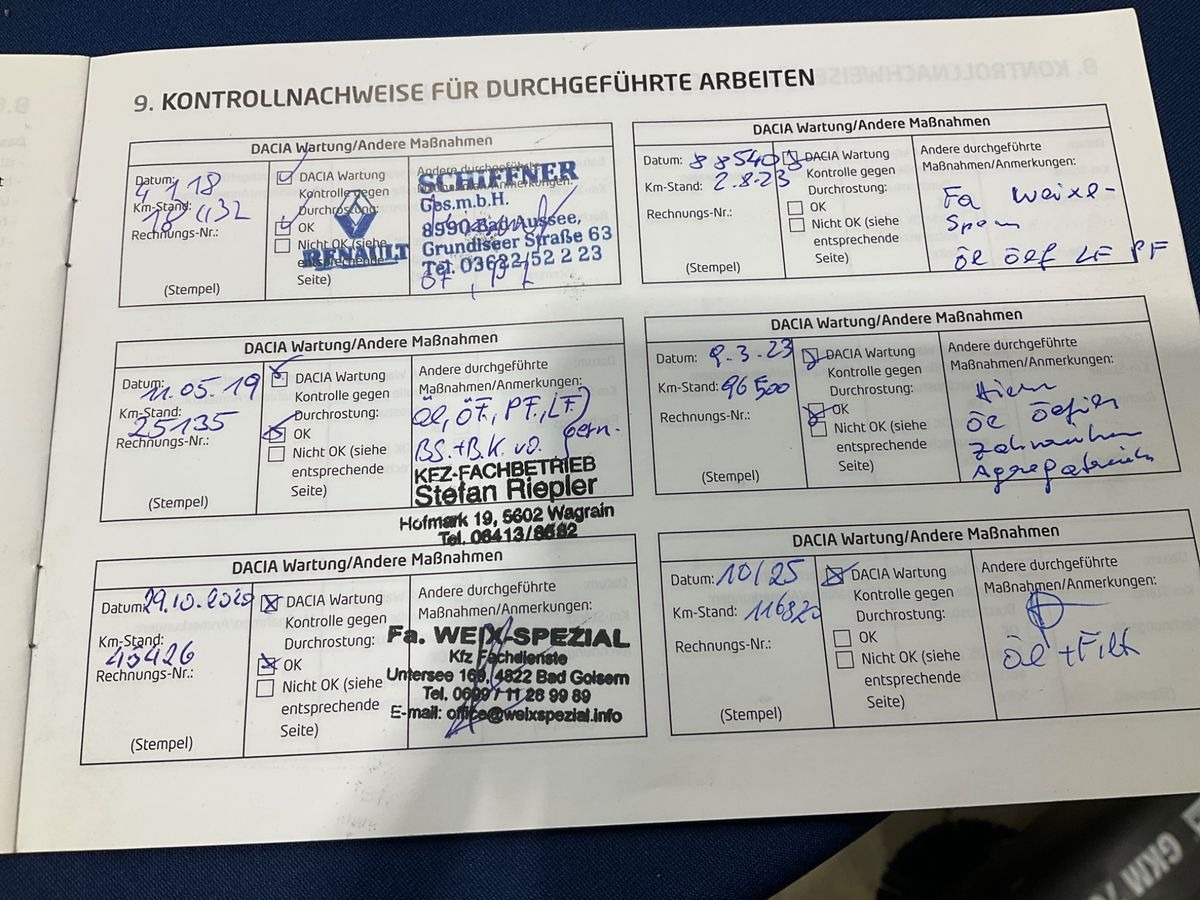 9. KONTROLLNACHWEISE FÜR DURCHGEFÜHRTE ARBEITEN
DACIA Wartung/Andere Maßnahmen
Datum: 4.1.18
Km-Stand: 18432
Rechnungs-Nr.:
(Stempel)
DACIA Wartung
Kontrolle gegen
Durchrostung:
OK
Nicht OK (siehe
entsprechende
Seite)
RENAULT
Andere durchgeführte
Maßnahmen/Anmerkungen:
SCHIEFNER
Ges.m.b.H.
8990 Bad Aussee,
Grundlseer Straße 63
Tel. 03622/52 2 23
DACIA Wartung/Andere Maßnahmen
Datum: 11.05.19
Km-Stand: 25135
Rechnungs-Nr.:
(Stempel)
DACIA Wartung
Kontrolle gegen
Durchrostung:
OK
Nicht OK (siehe
entsprechende
Seite)
Andere durchgeführte
Maßnahmen/Anmerkungen:
Öl, ÖF, PF, LF,
BS.+B.K. vo. gern.
KFZ-FACHBETRIEB
Stefan Riepler
Hofmark 19, 5602 Wagrain
Tel. 06413/8682
DACIA Wartung/Andere Maßnahmen
Datum: 29.10.2020
Km-Stand: 45426
Rechnungs-Nr.:
(Stempel)
DACIA Wartung
Kontrolle gegen
Durchrostung:
OK
Nicht OK (siehe
entsprechende
Seite)
Andere durchgeführte
Maßnahmen/Anmerkungen:
Fa. WEIX-SPEZIAL
Kfz Fachdienste
Untersee 169, 4822 Bad Goisern
Tel. 0699 / 11 28 99 89
E-mail: office@weixspezial.info
DACIA Wartung/Andere Maßnahmen
Datum: 88540
Km-Stand: 2.8.23
Rechnungs-Nr.:
(Stempel)
DACIA Wartung
Kontrolle gegen
Durchrostung:
OK
Nicht OK (siehe
entsprechende
Seite)
Andere durchgeführte
Maßnahmen/Anmerkungen:
Fa Weixe-
Öl Ölf LF PF
DACIA Wartung/Andere Maßnahmen
Datum: 9.3.23
Km-Stand: 96500
Rechnungs-Nr.:
(Stempel)
DACIA Wartung
Kontrolle gegen
Durchrostung:
OK
Nicht OK (siehe
entsprechende
Seite)
Andere durchgeführte
Maßnahmen/Anmerkungen:
Öl
DACIA Wartung/Andere Maßnahmen
Datum: 10/25
Km-Stand: 116820
Rechnungs-Nr.:
(Stempel)
DACIA Wartung
Kontrolle gegen
Durchrostung:
OK
Nicht OK (siehe
entsprechende
Seite)
Andere durchgeführte
Maßnahmen/Anmerkungen:
Öl + Filt
GKM